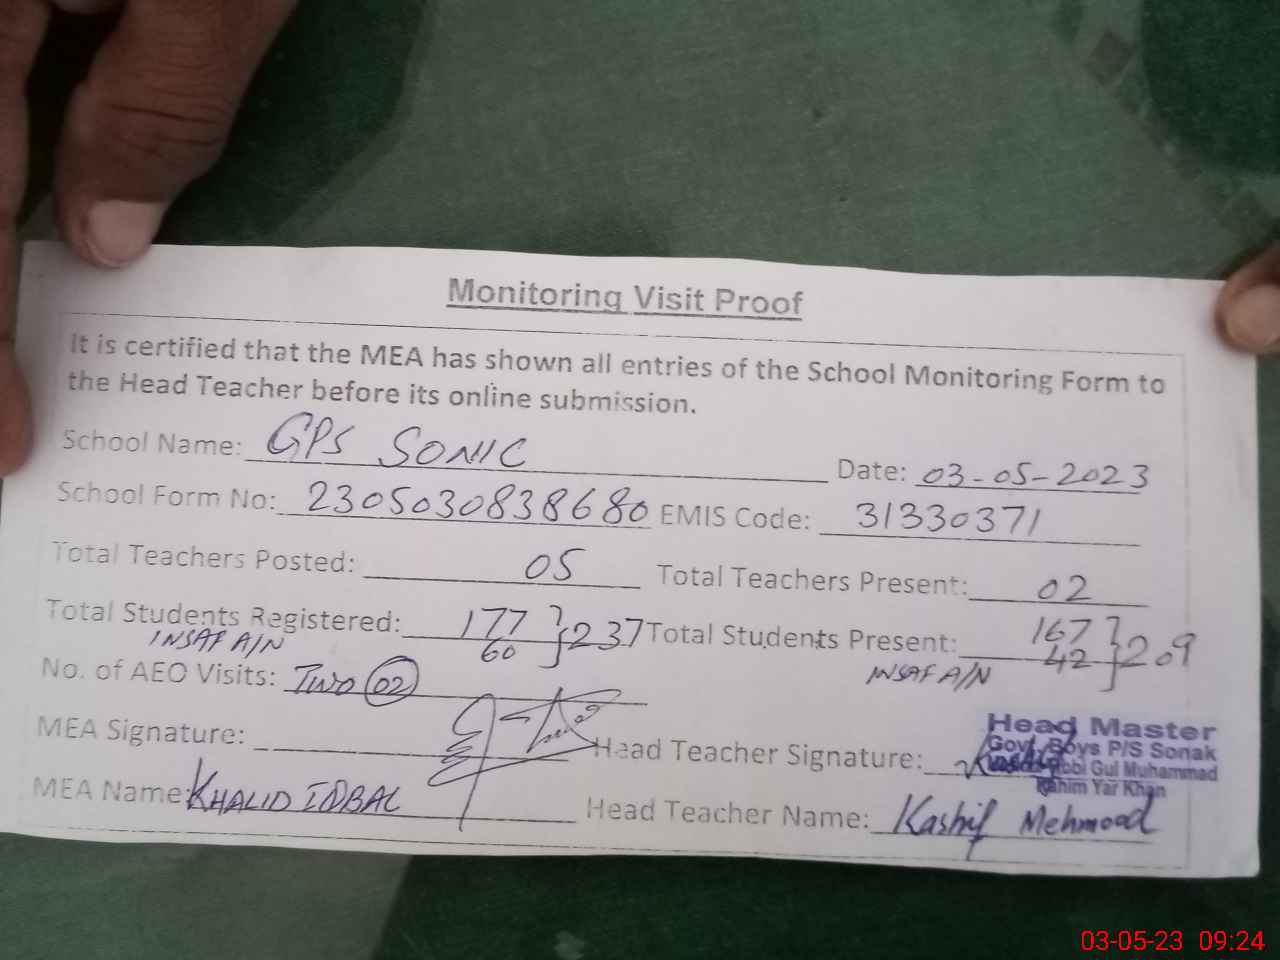 Monitoring Visit Proof
It is certified that the MEA has shown all entries of the School Monitoring Form to
the Head Teacher before its online submission.
School Name: GPS SONIC Date: 03-05-2023
School Form No: 2305030838680 EMIS Code: 31330371
Total Teachers Posted: 05 Total Teachers Present: 02
Total Students Registered: 177 } 237 Total Students Present: 167 } 209
INSAF A/N 60 INSAF A/N 42
No. of AEO Visits: Two 02
MEA Signature: Head Teacher Signature:
Head Master
Govt. Boys P/S Sonak
Gul Muhammad
Rahim Yar Khan
MEA Name: KHALID IQBAL Head Teacher Name: Kashif Mehmood
03-05-23 09:24